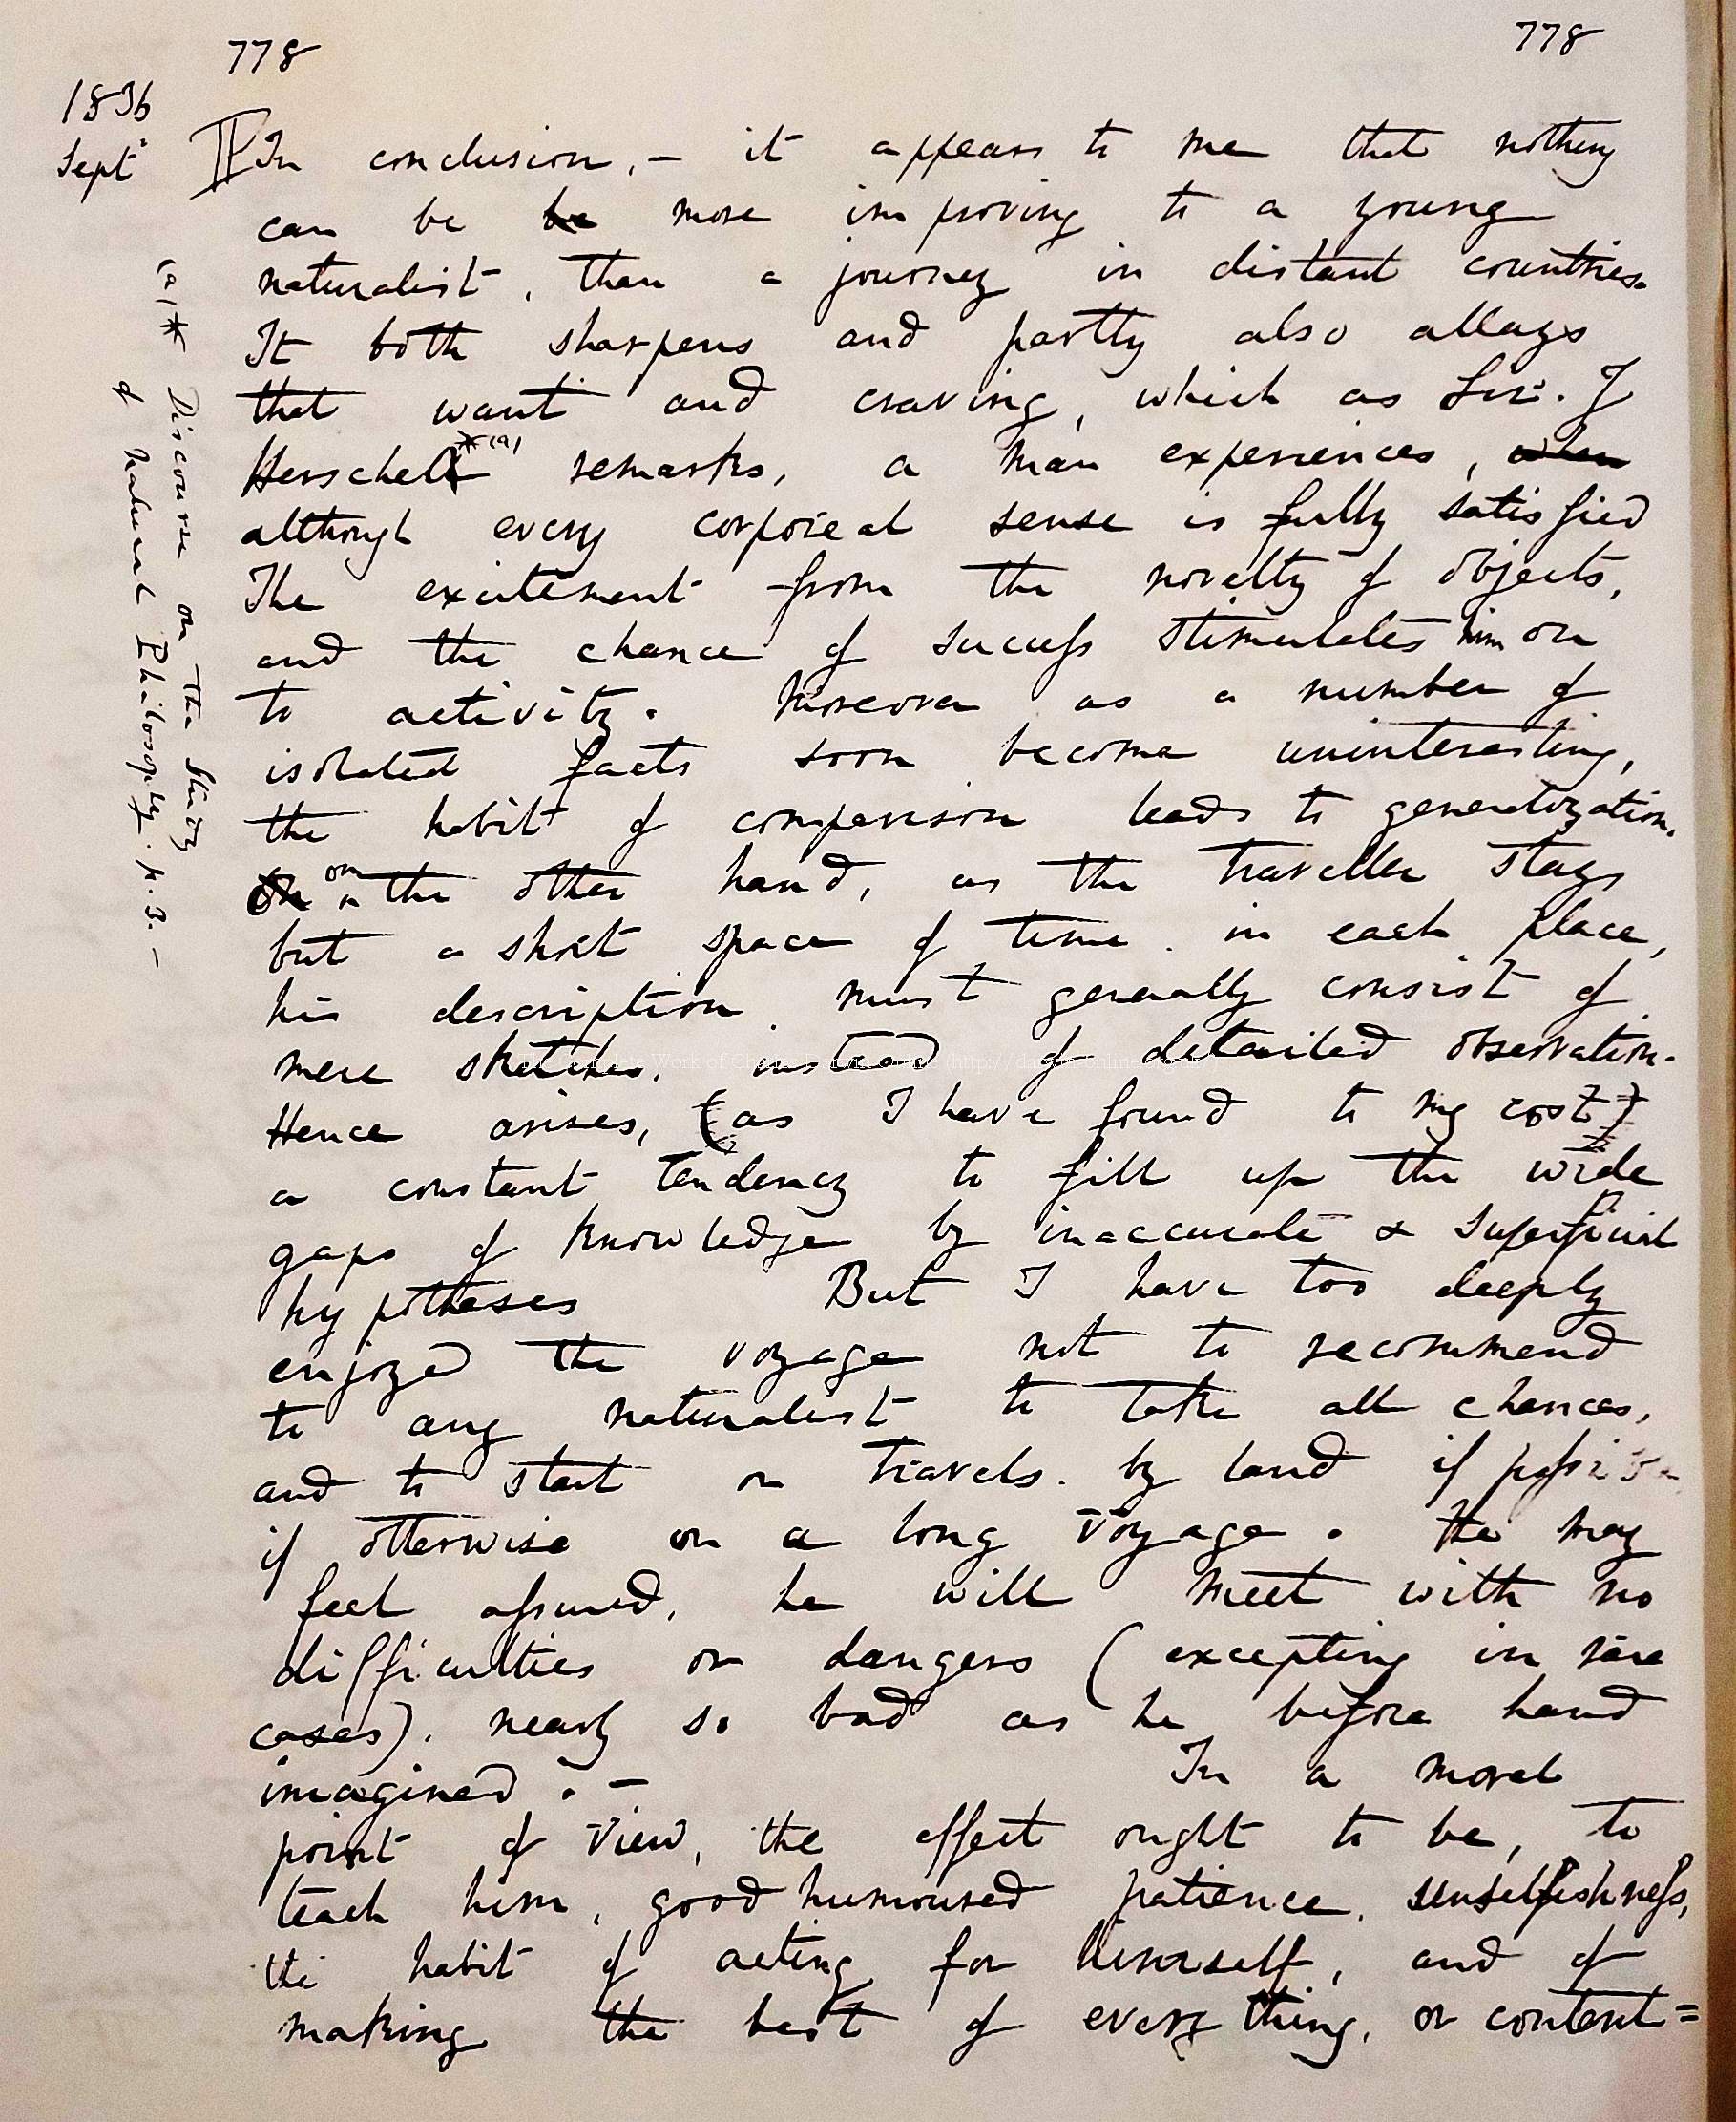 778
778
1836
Sept
In conclusion, – it appears to me that nothing
can be be more improving to a young
naturalist, than a journey in distant countries.
It both sharpens and partly also allays
that want and craving, which as Sir. J
Herschell *(a) remarks, a man experiences, when
although every corporeal sense is fully satisfied
The excitement from the novelty of objects,
and the chance of success stimulates him on
to activity. Moreover as a number of
isolated facts soon become uninteresting,
the habit of comparison leads to generalization.
On on the other hand, as the traveller stays
but a short space of time in each place,
his description must generally consist of
mere sketches, instead of detailed observation.
Hence arises, (as I have found to my cost)
a constant tendency to fill up the wide
gaps of knowledge by inaccurate & superficial
hypotheses But I have too deeply
enjoyed the voyage not to recommend
to any naturalist to take all chances,
and to start on travels by land if possible
if otherwise on a long voyage. He may
feel assured, he will meet with no
difficulties or dangers (excepting in rare
cases), nearly so bad as he before hand
imagined. –
In a moral
point of view, the effect ought to be, to
teach him, good humoured patience, unselfishness,
the habit of acting for himself, and of
making the best of every thing, or content=
(a)* Discourse on the Study
of Natural Philosophy. p. 3. –